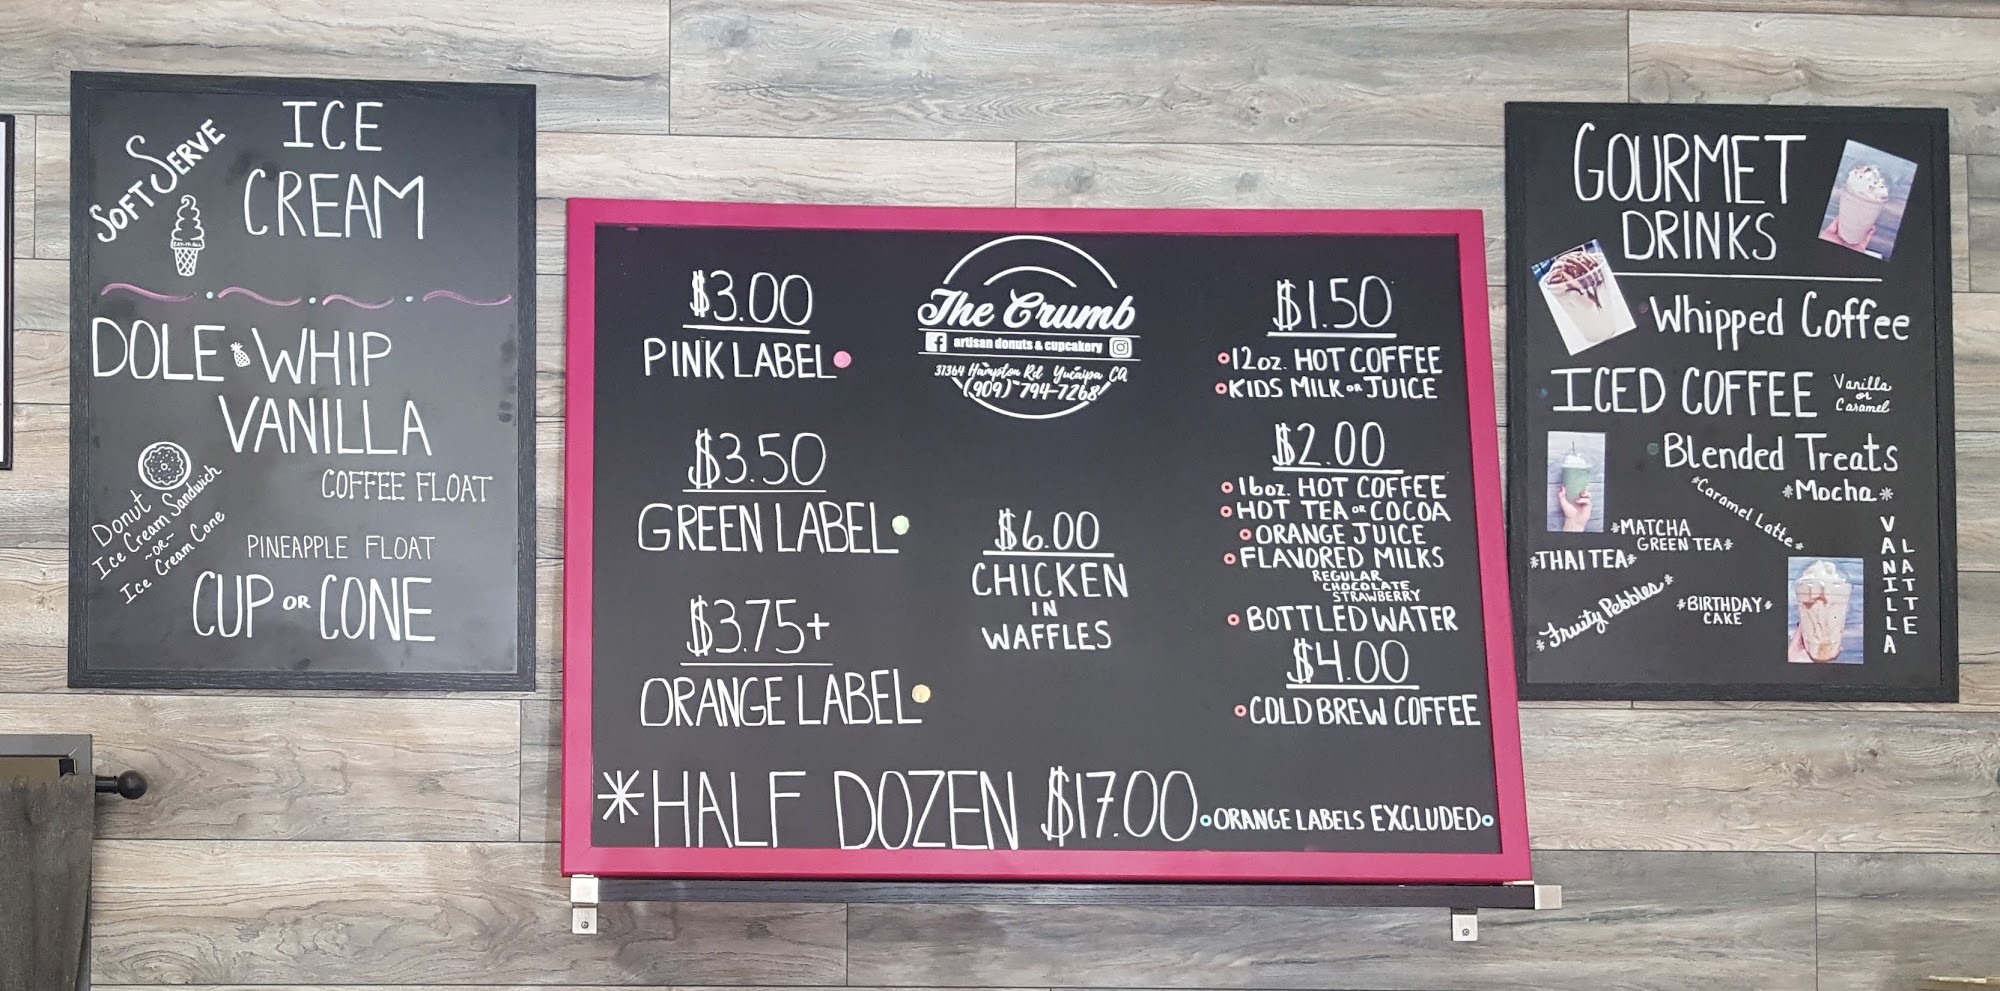 SOFT SERVE
ICE
CREAM
EAT-IT-ALL
DOLE WHIP
VANILLA
COFFEE FLOAT
Donut
Ice Cream Sandwich
~OR~
Ice Cream Cone
PINEAPPLE FLOAT
CUP OR CONE
$3.00
PINK LABEL
$3.50
GREEN LABEL
$3.75+
ORANGE LABEL
The Crumb
artisan donuts & cupcakery
31364 Hampton Rd Yucaipa CA
(909) 794-7268
$6.00
CHICKEN
IN
WAFFLES
$1.50
12oz. HOT COFFEE
KIDS MILK OR JUICE
$2.00
16oz. HOT COFFEE
HOT TEA OR COCOA
ORANGE JUICE
FLAVORED MILKS
REGULAR
CHOCOLATE
STRAWBERRY
BOTTLED WATER
$4.00
COLD BREW COFFEE
*HALF DOZEN $17.00 ORANGE LABELS EXCLUDED
GOURMET
DRINKS
Whipped Coffee
ICED COFFEE Vanilla
or
Caramel
Blended Treats
*Mocha*
*Caramel Latte*
*MATCHA
GREEN TEA*
*THAI TEA*
*Fruity Pebbles*
*BIRTHDAY*
CAKE
*VANILLA
LATTE